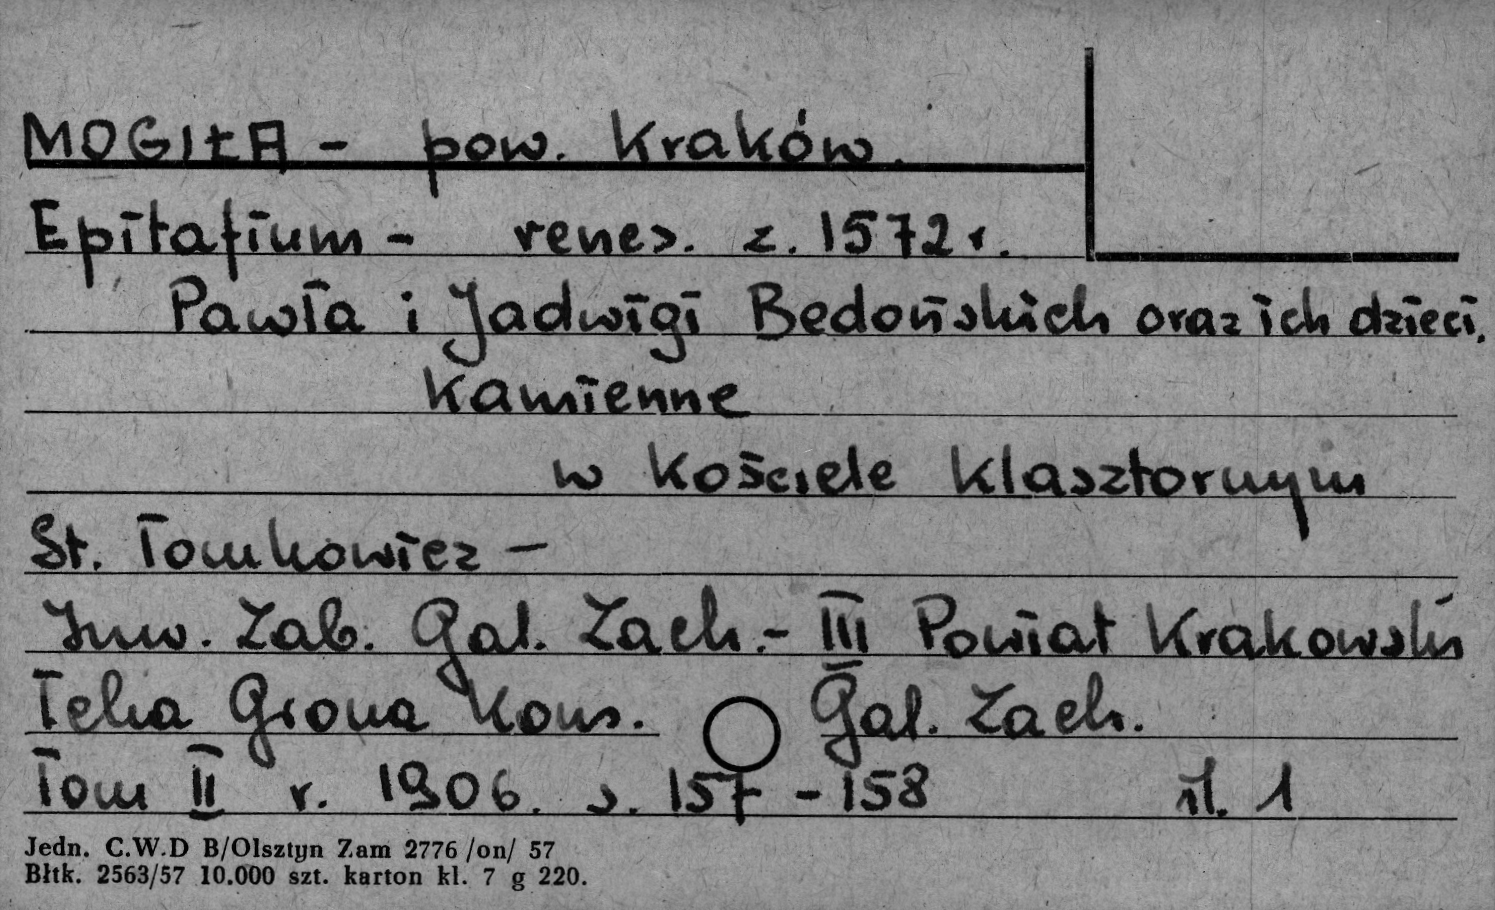 MOGIŁA - pow. Kraków.
Epitafium - renes. z. 1572 r.
Pawła i Jadwigi Bedońskich oraz ich dzieci.
Kamienne
w Kościele Klasztornym
St. Tomkowicz -
Inw. Zab. Gal. Zach. - III Powiat Krakowski
Teka Grona Kons. Gal. Zach.
Tom II r. 1906. s. 157 - 158 il. 1
Jedn. C.W.D B/Olsztyn Zam 2776 /on/ 57
Błtk. 2563/57 10.000 szt. karton kl. 7 g 220.